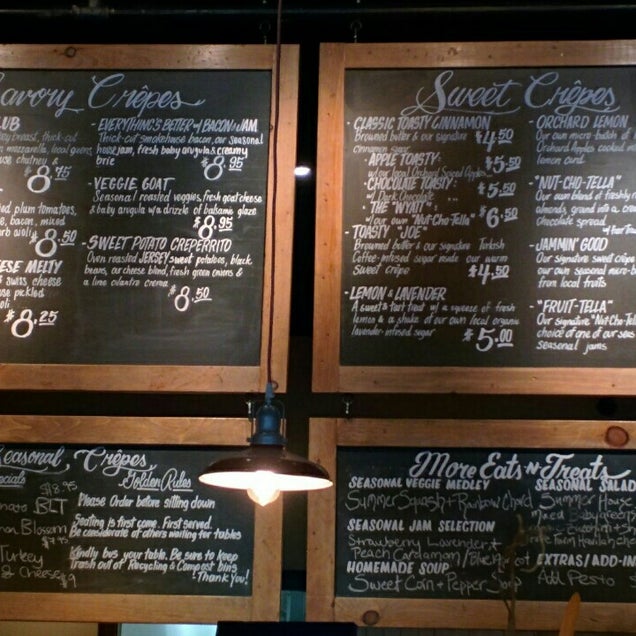 Savory Crêpes
LUB
key breast, thick-cut
mozzarella, local greens
chutney &
$8.45
ed plum tomatoes,
e, bacon, mixed
arb aioli
$8.50
ESE MELTY
& swiss cheese
se pickled
oli
$8.25
- EVERYTHING'S BETTER w/ BACON & JAM
Thick-cut smokehouse bacon, our seasonal
house jam, fresh baby arugula & creamy
brie
$8.95
- VEGGIE GOAT
Seasonal roasted veggies, fresh goat cheese
& baby arugula w/ a drizzle of balsamic glaze
$8.95
- SWEET POTATO CREPERRITO
Oven roasted JERSEY sweet potatoes, black
beans, our cheese blend, fresh green onions &
a lime cilantro crema
$8.50
Sweet Crêpes
- CLASSIC TOASTY CINNAMON
Browned butter & our signature
cinnamon sugar
$4.50
- APPLE TOASTY:
w/ our local Orchard Spiced Apples
$5.50
- CHOCOLATE TOASTY:
w/ Dark Chocolate
$5.50
- THE "WYATT":
w/ our own "Nut-Cho-Tella"
$6.50
- TOASTY "JOE"
Browned butter & our signature Turkish
Coffee-infused sugar inside our warm
Sweet crêpe
$4.50
- LEMON & LAVENDER
A sweet & tart treat w/ a squeeze of fresh
lemon & a shake of our own local organic
lavender-infused sugar
$5.00
- ORCHARD LEMON
Our own micro-batch of
Orchard Apples cooked
lemon curd
- "NUT-CHO-TELLA"
Our own blend of freshly
almonds, ground into a
chocolate spread
- JAMMIN' GOOD
Our signature sweet crêpe
our own seasonal micro-b
from local fruits
- "FRUIT-TELLA"
Our signature "Nut-Cho-Tell
choice of one of our seas
seasonal jams
Seasonal Crêpes
ecials
$8.95
mato BLT
Blossom
$7.95
Turkey
& Cheese $9
Golden Rules
Please Order before sitting down
Seating is first come. First served.
Be considerate of others waiting for tables
Kindly bus your table. Be sure to keep
Trash out of Recycling & Compost bins
- Thank You!
More Eats N Treats
SEASONAL VEGGIE MEDLEY
Summer Squash + Rainbow Chard
SEASONAL JAM SELECTION
Strawberry Lavender +
Peach Cardamom / Blue
HOMEMADE SOUP
Sweet Corn + Pepper Soup
SEASONAL SALAD
Summer House
mixed baby greens
EXTRAS/ADD-IN
Add Pesto